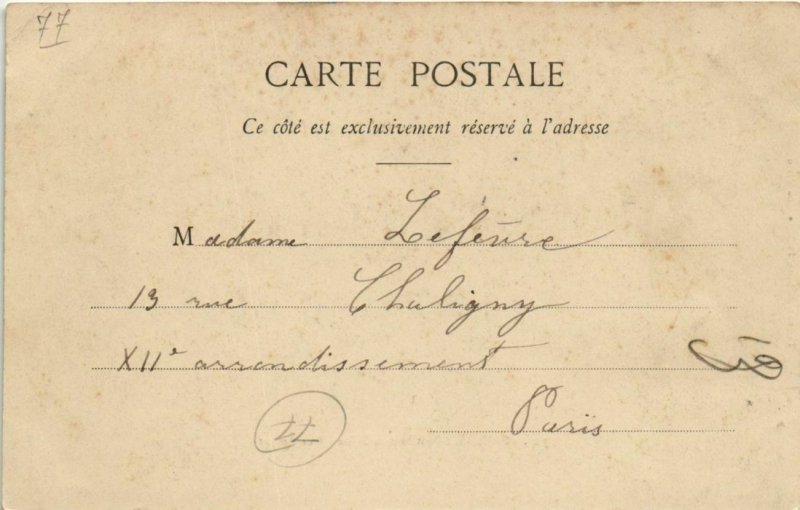 77
CARTE POSTALE
Ce côté est exclusivement réservé à l'adresse
Madame Lefèvre
13 rue Chaligny
XIIe arrondissement
Paris
77